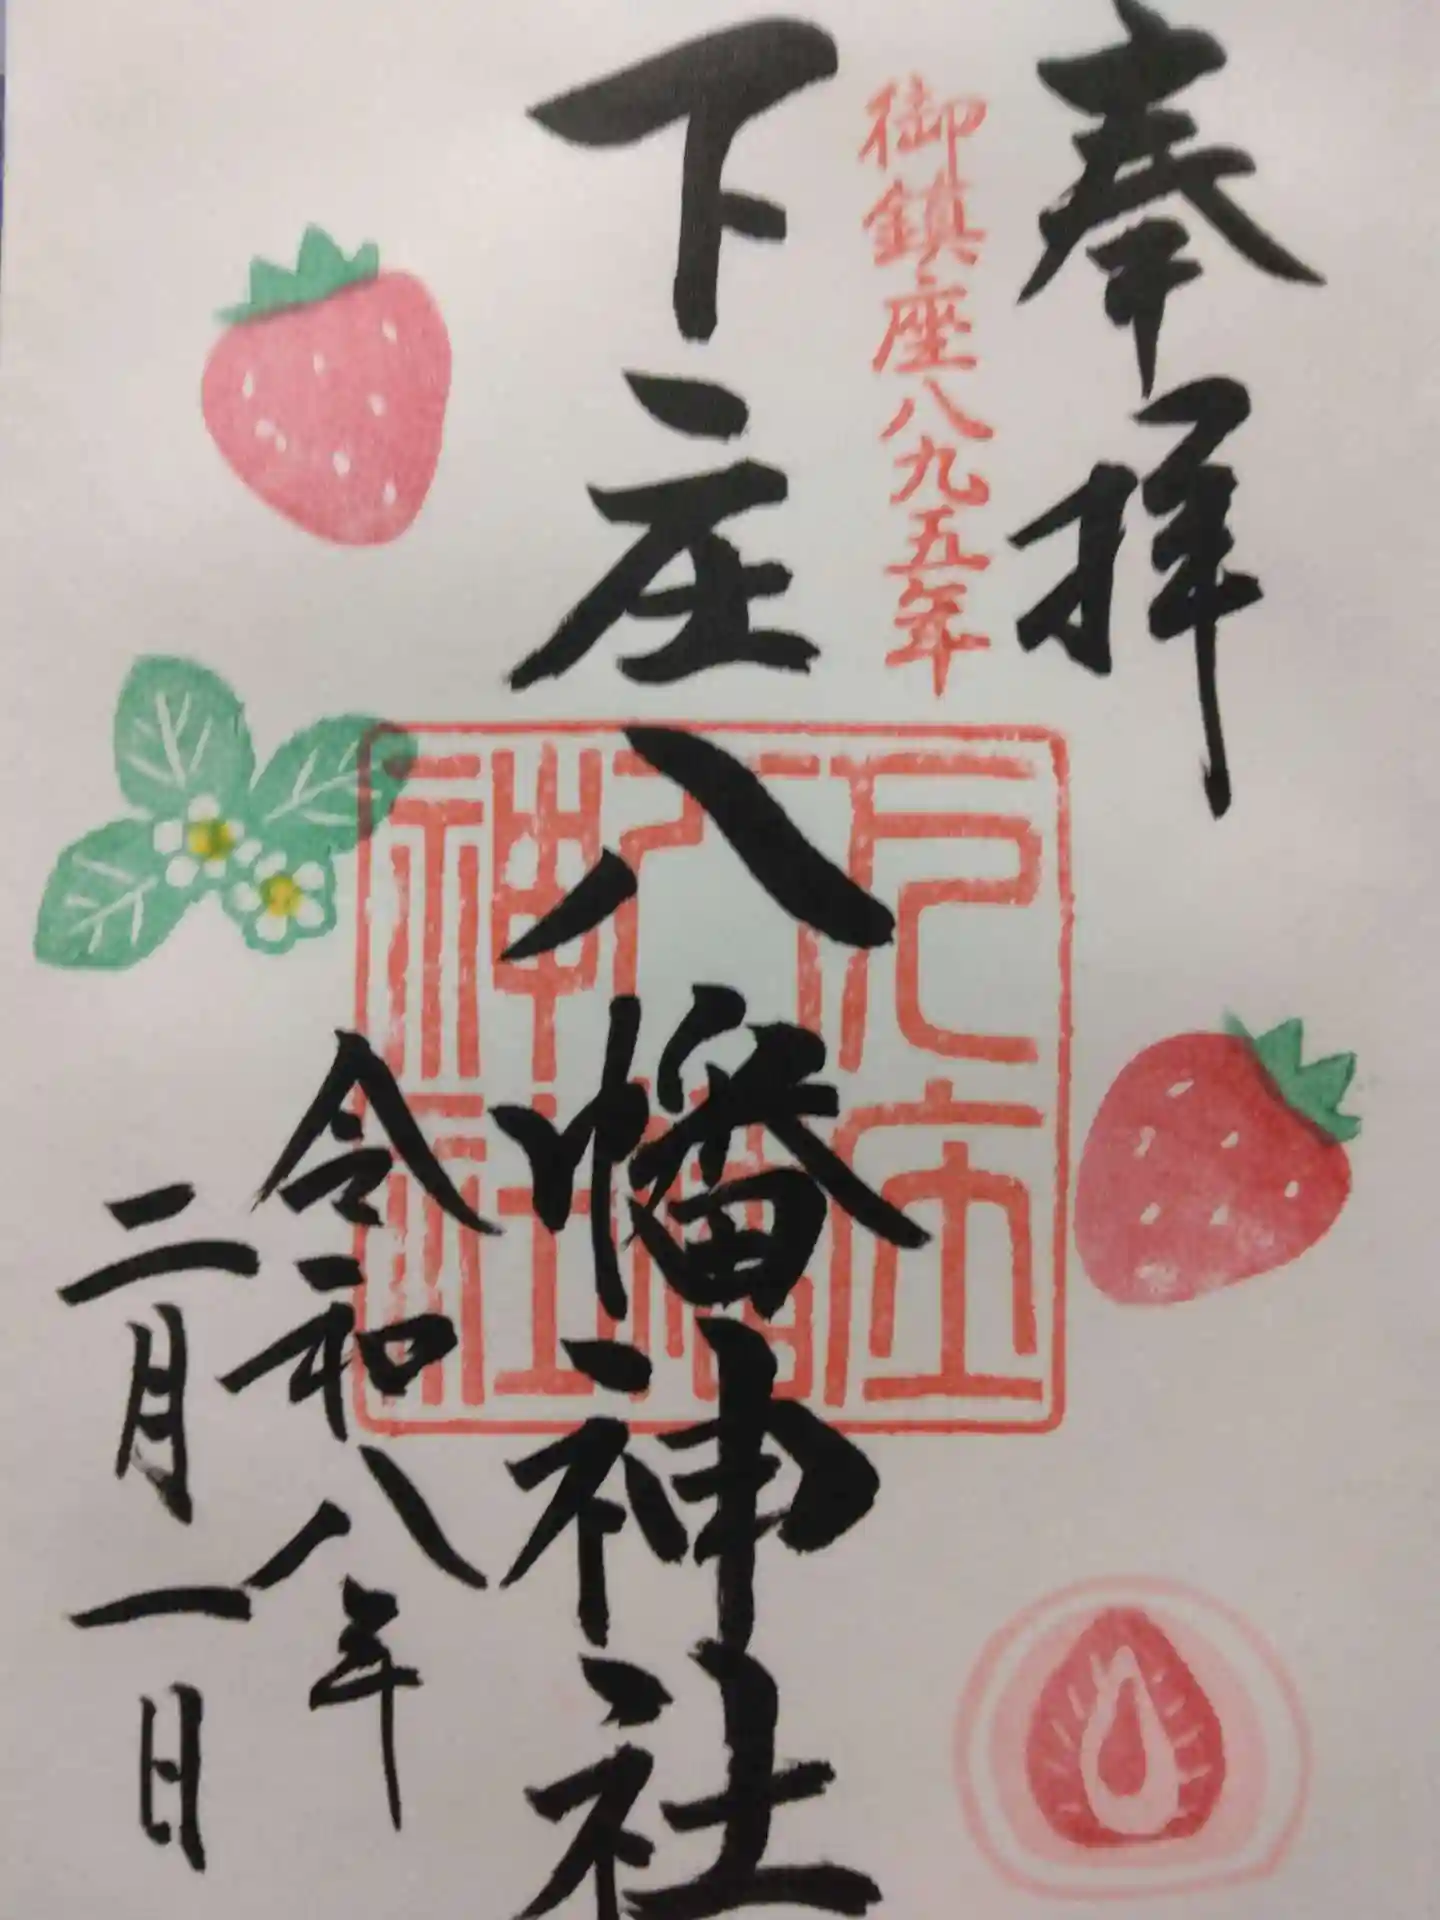 奉拝
御鎮座八九五年
下庄八幡神社
下庄
八幡
神社
令和八年
二月一日